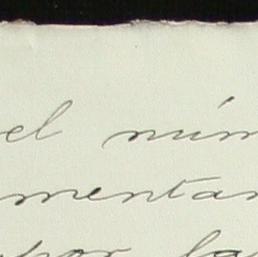 el núm
mentar
por la